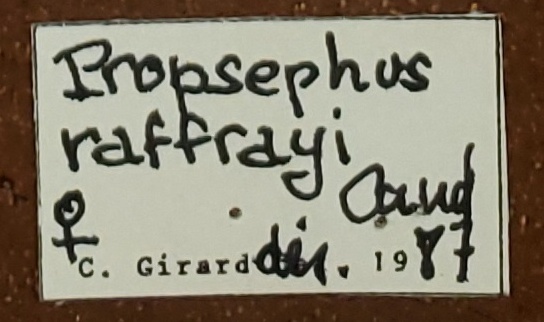 Propsephus
raffrayi
♀ Cand
C. Girard dét. 1987